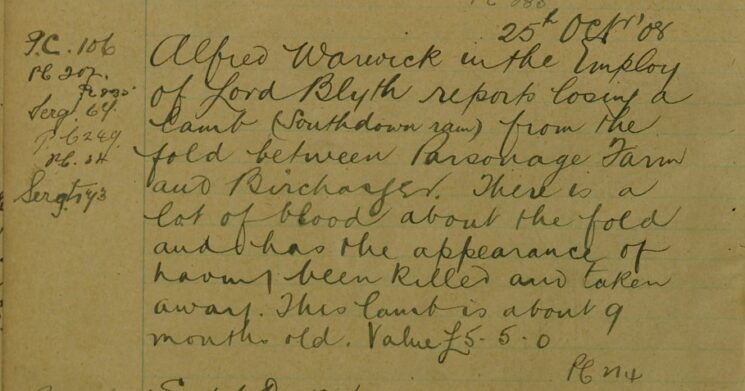 25th Octr '08
P.C. 106
PC 207
Sergt 64
P.C 249
PC. 24
Sergt 143
Alfred Warwick in the Employ
of Lord Blyth reports losing a
lamb (Southdown ram) from the
fold between Parsonage Farm
and Birchanger. There is a
lot of blood about the fold
and has the appearance of
having been killed and taken
away. This lamb is about 9
months old. Value £5-5-0